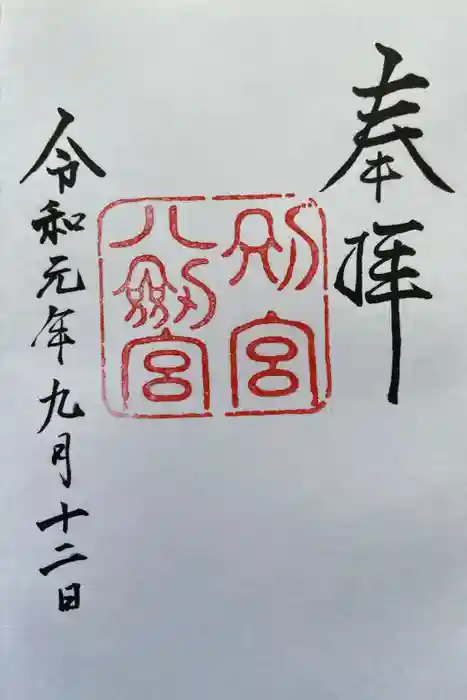 奉拝
別宮
八剱宮
令和元年九月十二日